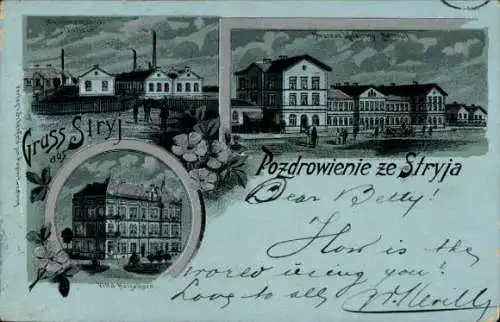 Gruss aus Stryj
Pozdrowienie ze Stryja
Dear Betty!
How is the
world using you?
Love to all